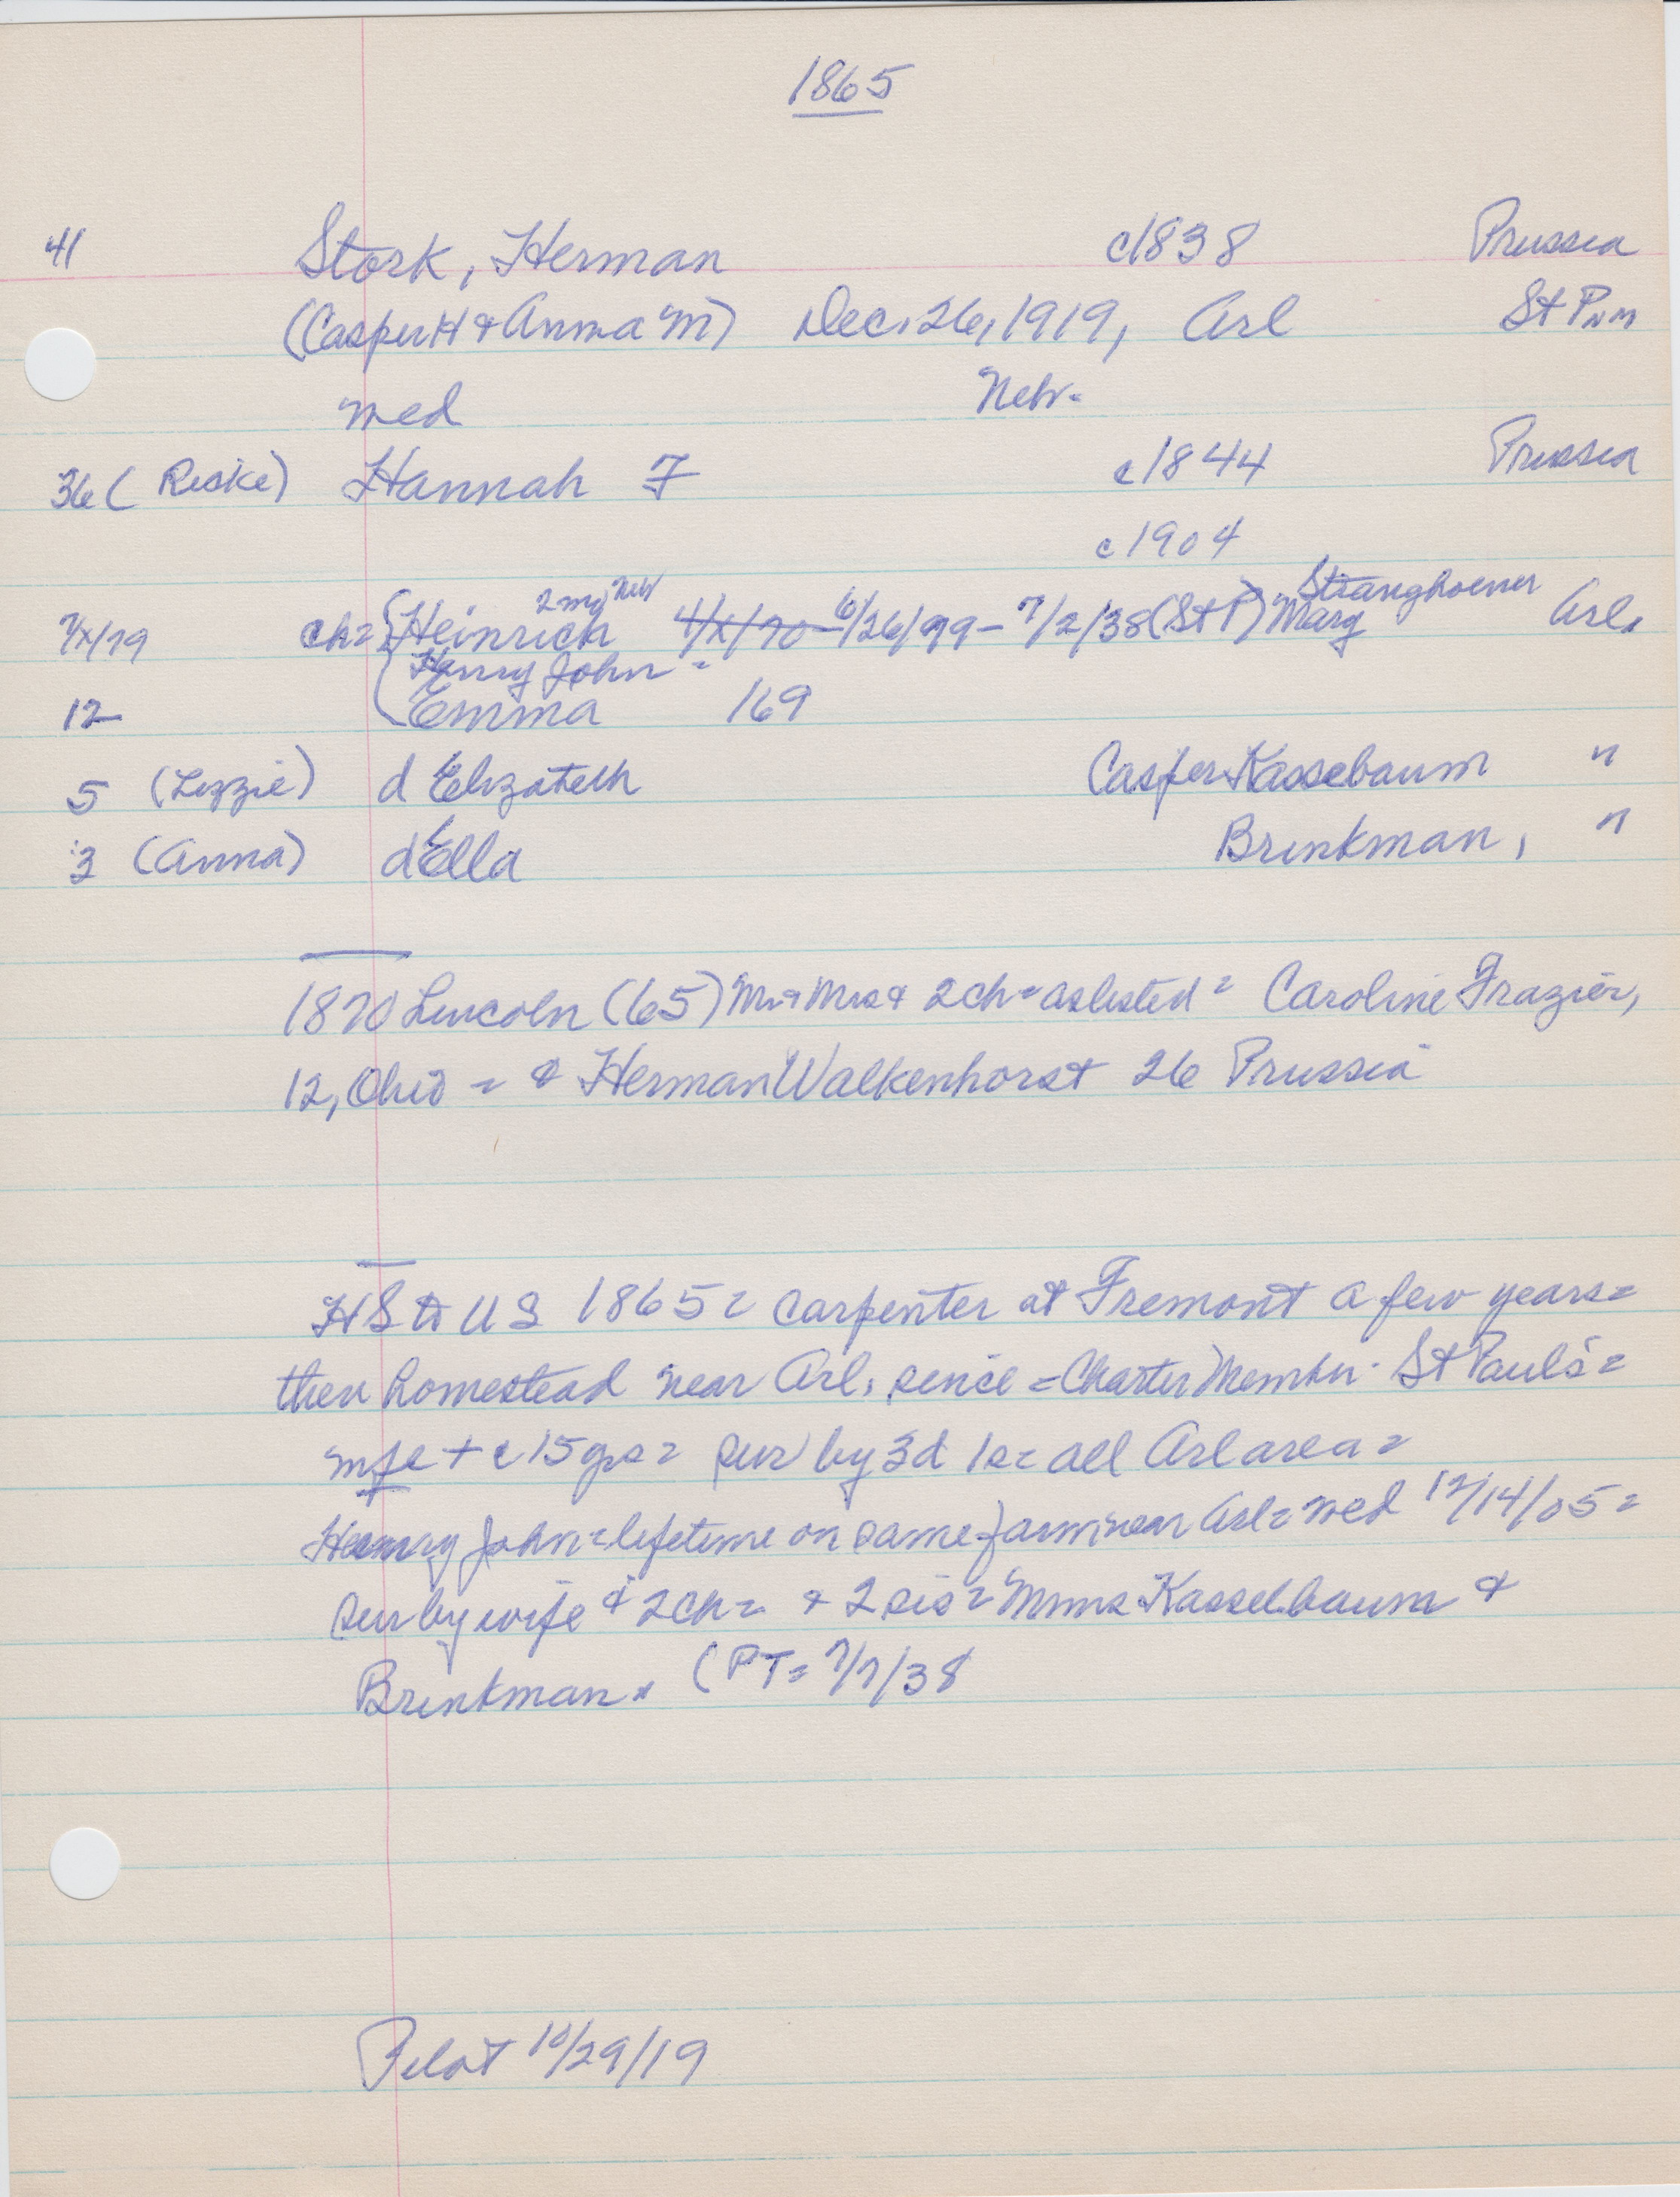 1865
41 Stork, Herman c1838 Prussia
(Casper H & Anna M) Dec. 26, 1919, Arl St P
med Nebr.
36 (Reske) Hannah F c1844 Prussia
c1904
2 mo, Neb Stranghoener
7/x/79 ch= {Heinrich 4/x/70 – 6/26/79 – 7/2/38 (St P) Marg Arl.
Henry John =
12 Emma 169
5 (Lizzie) d Elizabeth Casper Kassebaum "
3 (Anna) d Ella Brinkman, "
1870 Lincoln (65) Mr & Mrs & 2 ch = as listed = Caroline Frazier,
12, Ohio = & Herman Walkenhorst 26 Prussia
HS to US 1865 = carpenter at Fremont a few years =
then homestead near Arl. since = Charter Member St Paul's =
+ c 15 grs = sur by 3d 1s = all Arl area =
Henry John = lifetime on same farm near Arl = med 12/14/05 =
sur by wife & 2 ch = & 2 sis = Mmes Kasselbaum &
Brinkman. (PT = 7/7/38
Pilot 10/29/19